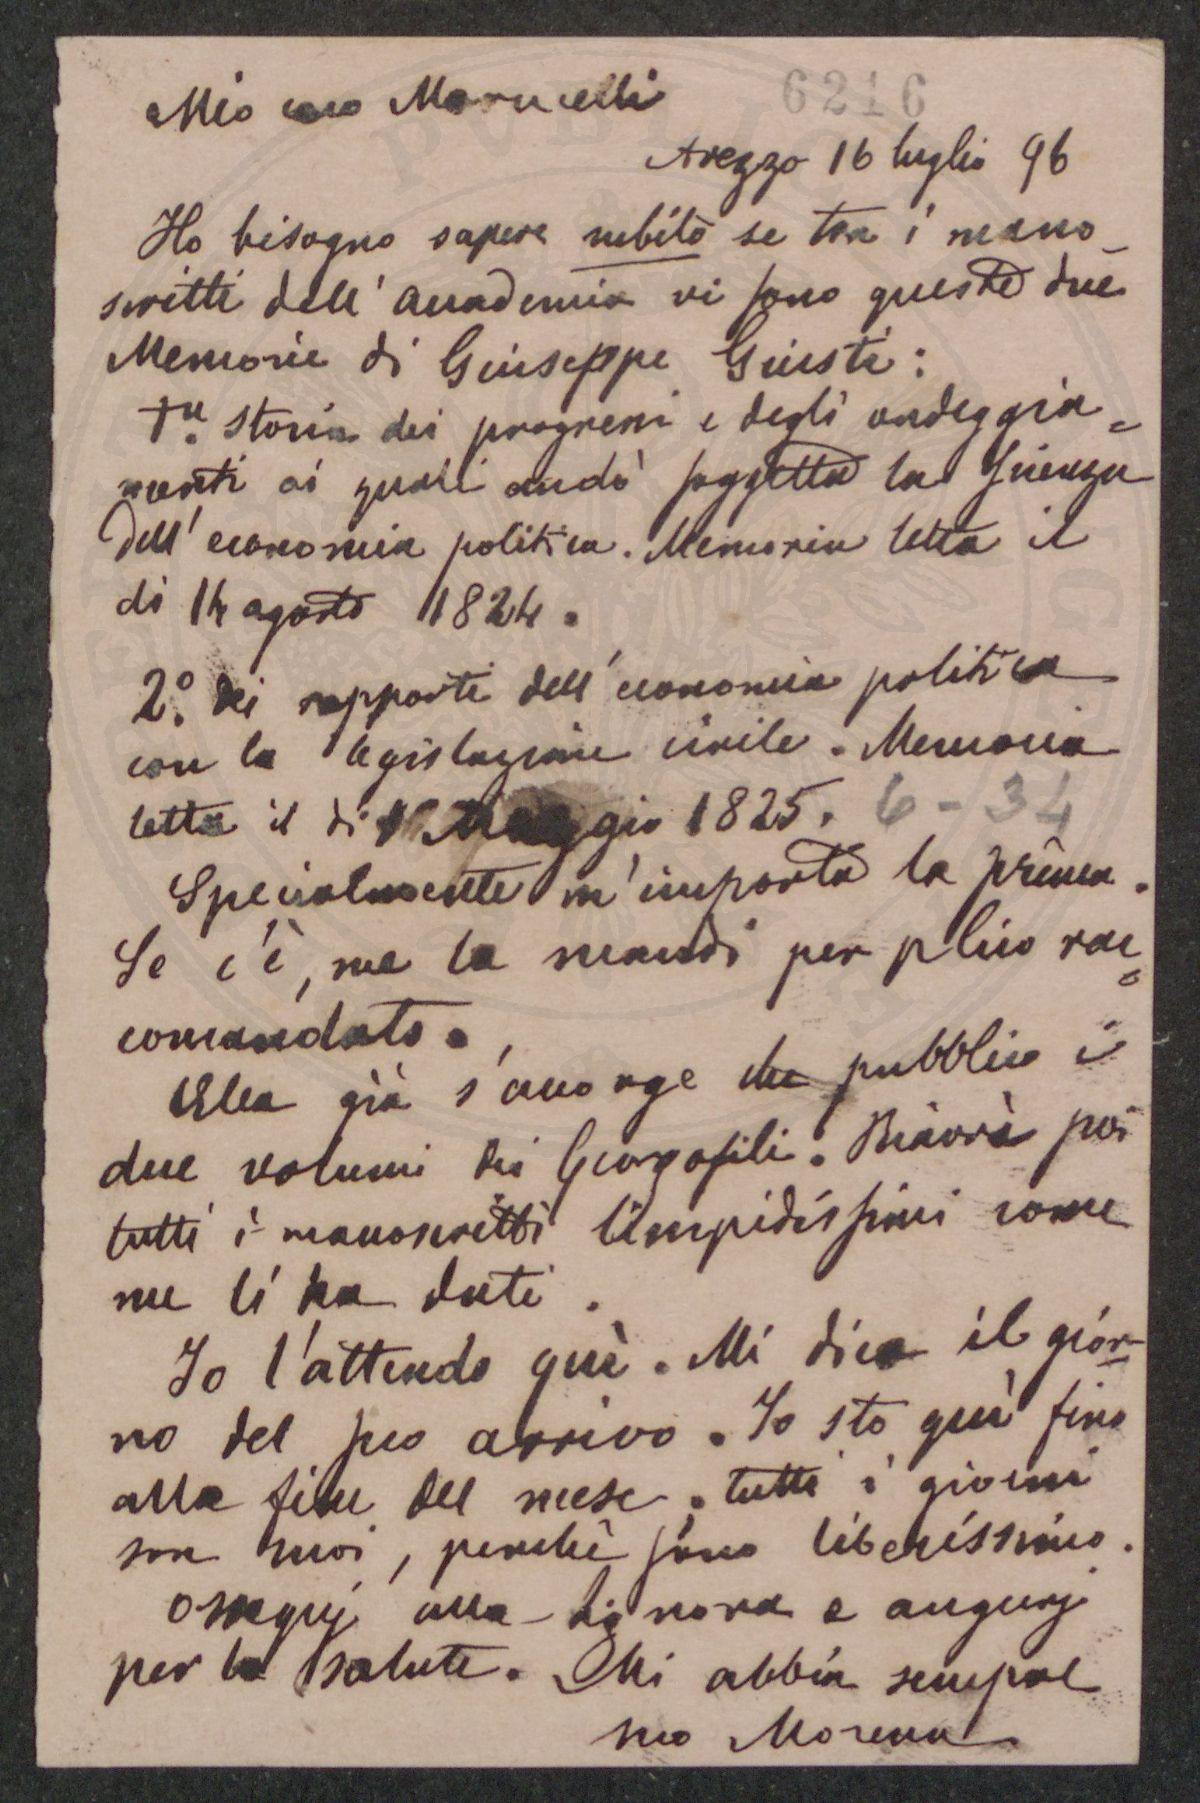 6216
Mio caro Marucelli
Arezzo 16 luglio 96
Ho bisogno sapere subito se tra i mano-
scritti dell'accademia vi sono queste due
Memorie di Giuseppe Giusti:
1ª. Storia dei progressi e degli ondeggia=
menti ai quali andò soggetta la scienza
dell'economia politica. Memoria letta il
dì 14 agosto 1824.
2º. Dei rapporti dell'economia politica
con la legislazione civile. Memoria
letta il dì Maggio 1825. 6-34
Specialmente m'importa la prima.
Se c'è, me la mandi per plico rac=
comandato.
Ella già s'accorge che pubblico i
due volumi dei Georgofili. Riavrà poi
tutti i manoscritti limpidissimi come
me li ha dati.
Io l'attendo quì. Mi dica il gior-
no del suo arrivo. Io sto quì fino
alla fine del mese. tutti i giorni
son suoi, perchè sono liberissimo.
Ossequj alla Signora e augurj
per la salute. Mi abbia sempre
suo Morena